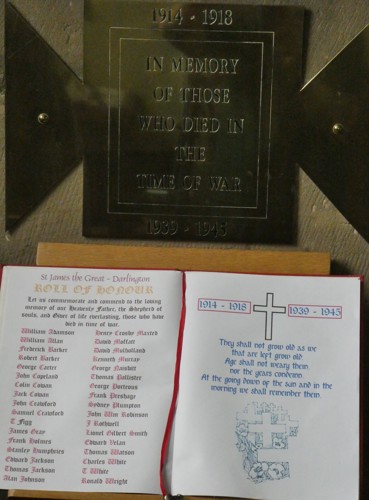 1914 - 1918
IN MEMORY
OF THOSE
WHO DIED IN
THE
TIME OF WAR
1939 - 1945
St James the Great - Darlington
ROLL OF HONOUR
Let us commemorate and commend to the loving
memory of our Heavenly Father, the Shepherd of
souls, and Giver of life everlasting, those who have
died in time of war.
William Adamson
William Allan
Frederick Barker
Robert Barker
George Carter
John Copeland
Colin Cowan
Jack Cowan
John Crawford
Samuel Crawford
T Figg
James Gray
Frank Holmes
Stanley Humphries
Edward Jackson
Thomas Jackson
Alan Johnson
Henry Coombe Maxted
David Moffatt
David Mulholland
Kenneth Murray
George
Thomas Pallister
George Porteous
Frank Pershage
Sydney Plumpton
John Wm Robinson
J Rothwell
Lionel Gilbert Smith
Edward
Thomas Watson
Charles White
T White
Ronald Wright
1914 - 1918
1939 - 1945
They shall not grow old as we
that are left grow old:
Age shall not weary them,
nor the years condemn.
At the going down of the sun and in the
morning we shall remember them.